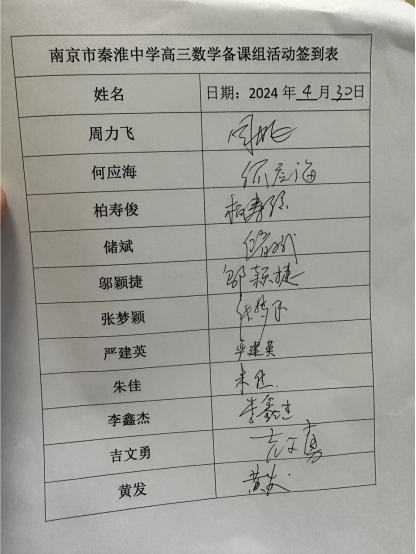 南京市秦淮中学高三数学备课组活动签到表
姓名 日期：2024 年 4 月 30 日
周力飞 周力飞
何应海 何应海
柏寿俊 柏寿俊
储斌 储斌
邬颖捷 邬颖捷
张梦颖 张梦颖
严建英 严建英
朱佳 朱佳
李鑫杰 李鑫杰
吉文勇 吉文勇
黄发 黄发